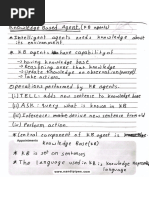 Knowledge Based Agent (KB agents)
* Intelligent agents needs knowledge about
its environment
* KB agents have capability of
→ having knowledge base
→ Reasoning over that knowledge
→ Update knowledge on observation
→ take action
Operations performed by KB agent.
(i) TELL: adds new sentence to knowledge base
(ii) ASK: query what is known in KB
(iii) Inference: derive new sentence from old
* Central component of KB agent is
Knowledge Base (KB)
* KB is set on sentences
* The language used in KB, is knowledge
language